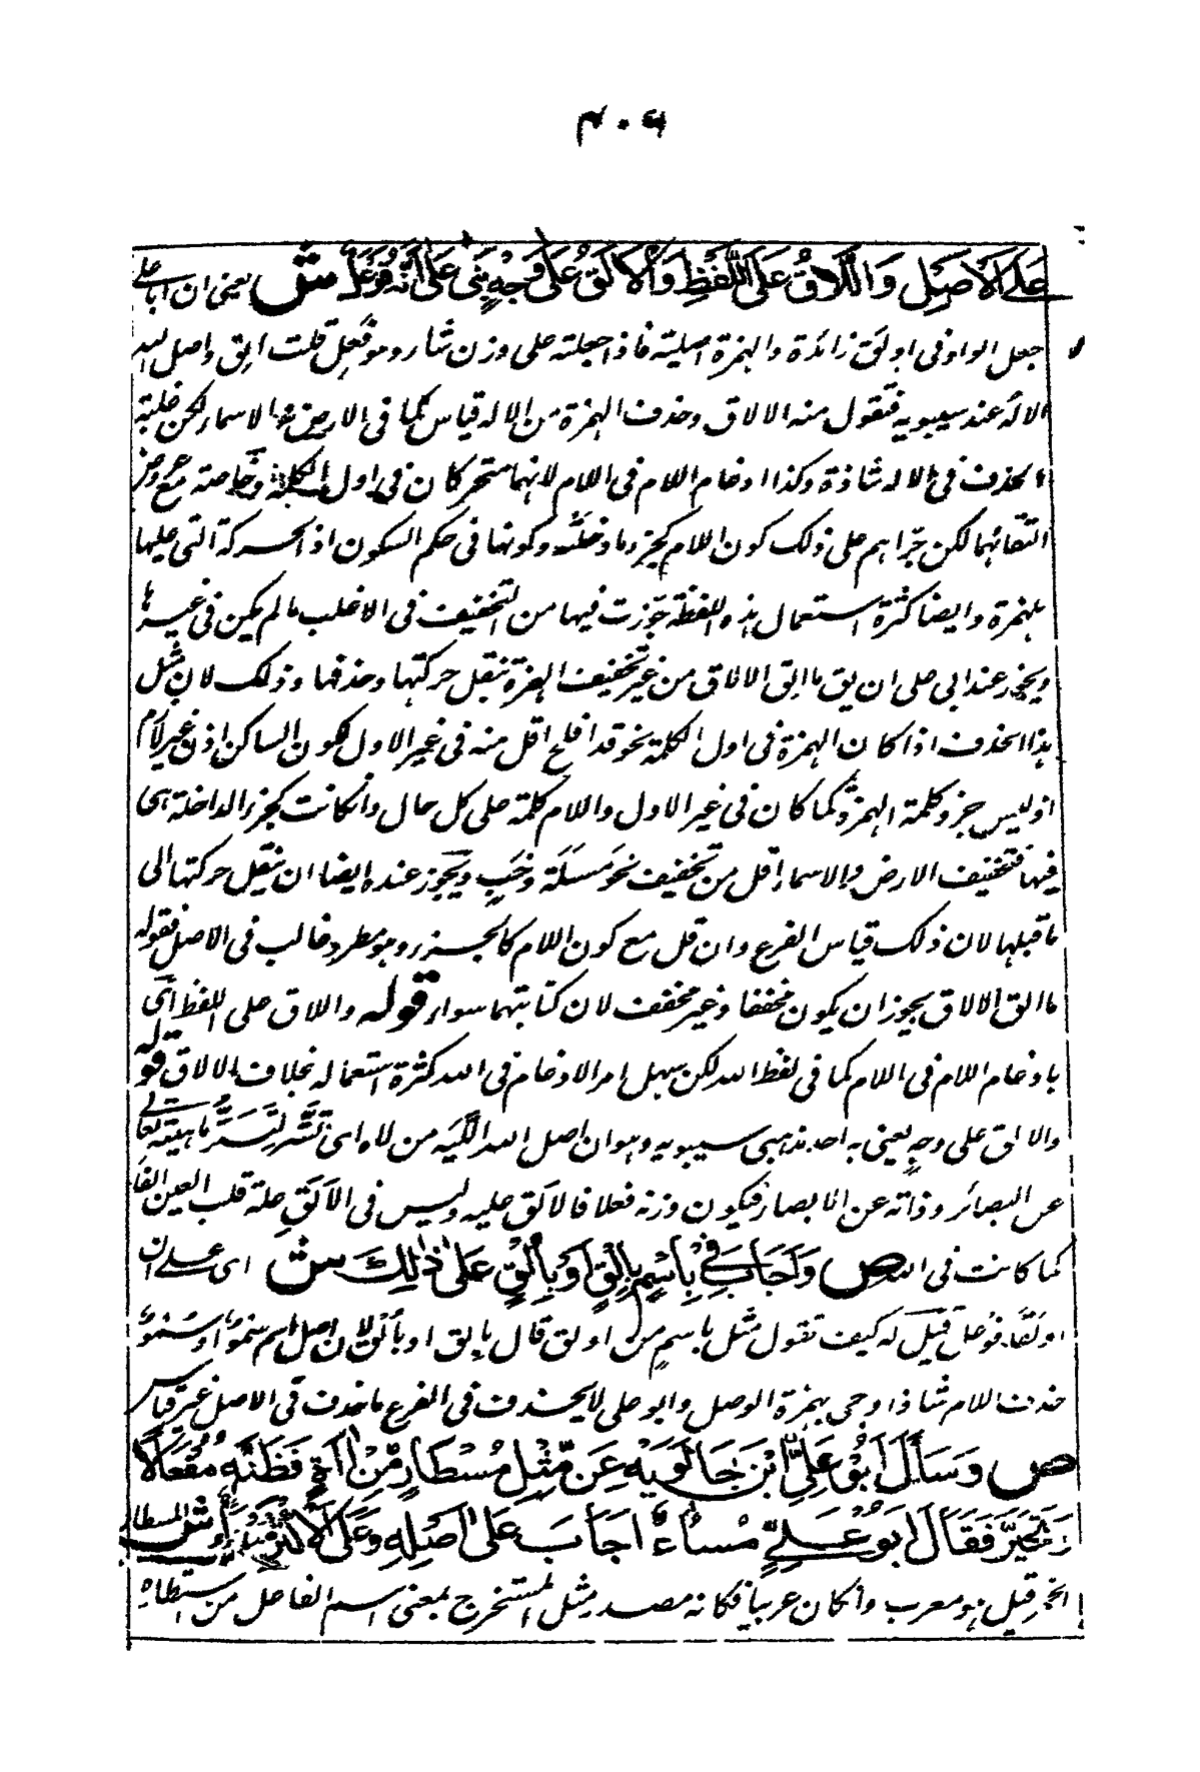 ۴۰۶
عَلَى الْأَصْلِ وَاللَّاقُ عَلَى اللَّفْظِ وَالْأَلَقُ عَلَى وَجْهٍ بُنِيَ عَلَى أَنَّهُ فَوْعَلٌ ش يعنى ان ابا على
جعل الواو فى اولق زائدة والهمزة اصلية فاذا جعلته على وزن شاء وهو فَعِل قلت الِق واصل الله
الالٰه عند سيبويه فتقول منه الالاق وحذف الهمزة من الاله قياس كما فى الارض والاسماء لكن غلبة
الحذف فى الاله شاذة وكذا ادغام اللام فى اللام لانهما متحركان فى اول الكلمة وخاصة مع عروض
التقائهما لكن جرّاهم على ذلك كون اللام كجزء ما دخلته وكونها فى حكم السكون اذ الحركة التى عليها
للهمزة وايضا كثرة استعمال هذه اللفظة جوّزت فيها من التخفيف فى الاغلب مالم يكن فى غيرها
ويجوز عند ابى على ان يق ما الق الالاق من غير تخفيف الهمزة بنقل حركتها وحذفها وذلك لان مثل
هذا الحذف اذا كان الهمزة فى اول الكلمة نحو قد افلح اقل منه فى غير الاول لكون الساكن اذن غير لازم
اذ ليس جزء كلمة الهمزة كما كان فى غير الاول واللام كلمة على كل حال وان كانت كجزء الداخلة هى
فيها فتخفيف الارض والاسماء اقل من تخفيف نحو مسلة وخب ويجوز عنده ايضا ان ينقل حركتها الى
ما قبلها لان ذلك قياس الفرع وان قل مع كون اللام كالجزء وهو مطرد غالب فى الاصل فقوله
ما الق الالاق يجوز ان يكون مخففا وغير مخفف لان كتابتهما سواء قوله واللاق على اللفظ اى
بادغام اللام فى اللام كما فى لفظ الله لكن سهل امر الادغام فى الله كثرة استعماله بخلاف الالاق قوله
والالق على وجه يعنى به احد مذهبى سيبويه وهو ان اصل الله اللَّيَه من لاه اى تستّر لتستّر ماهيته تعالى
عن البصائر وذاته عن الابصار فيكون وزنه فعلا فالالق عليه وليس فى الالَق علة قلب العين الفا
كما كانت فى الله ص وَأَجَابَ فِي بِاسْمٍ بِالْقٍ أَوْ بِأُلْقٍ عَلَى ذٰلِكَ ش اى على ان
اولقا فوعل قيل له كيف تقول مثل باسم من اولق قال بالق او بألق لان اصل اسم سمو او سُمو
حذفت اللام شاذا وجى بهمزة الوصل وابو على لا يحذف فى الفرع ما حذف فى الاصل غير قياس
ص وَسَأَلَ أَبُو عَلِيٍّ ابْنَ خَالَوَيْهِ عَنْ مِثْلِ مُسْطَارٍ مِنْ اٰأَةٍ فَظَنَّهُ مُفْعَالًا
وَتَحَيَّرَ فَقَالَ أَبُو عَلِيٍّ مُسْاءٌ أَجَابَ عَلَى أَصْلِهِ وَعَلَى الْأَكْثَرِ ش المسطار
الخمر قيل هو معرب وان كان عربيا فكانه مصدر مثل المستخرج بمعنى اسم الفاعل من استطاره